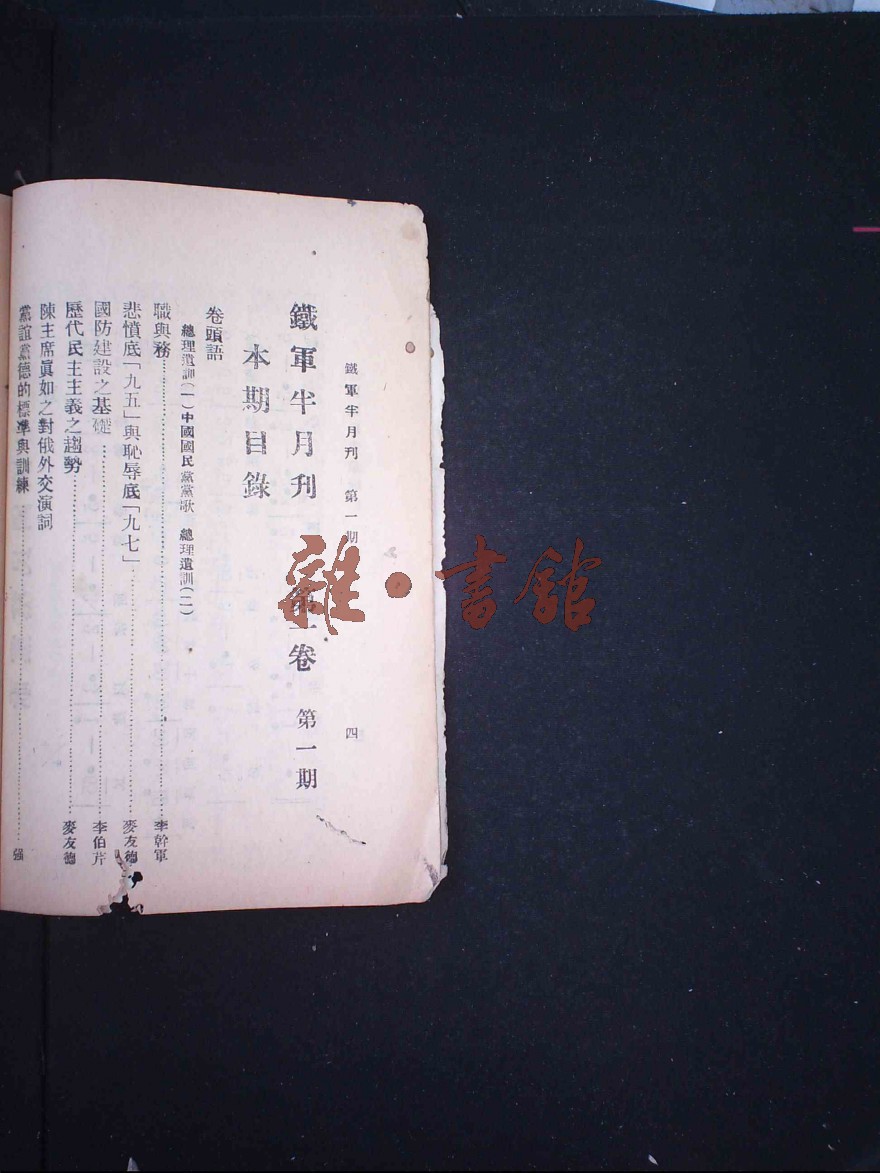 鐵軍半月刊 第一期
四
鐵軍半月刊 第一卷 第一期
本期目錄
卷頭語
總理遺訓(一)中國國民黨黨歌 總理遺訓(二)
職與務……李幹軍
悲憤底「九五」與恥辱底「九七」……麥友德
國防建設之基礎……李伯芹
歷代民主主義之趨勢……麥友德
陳主席眞如之對俄外交演詞
黨誼黨德的標準與訓練……强
雜·書館